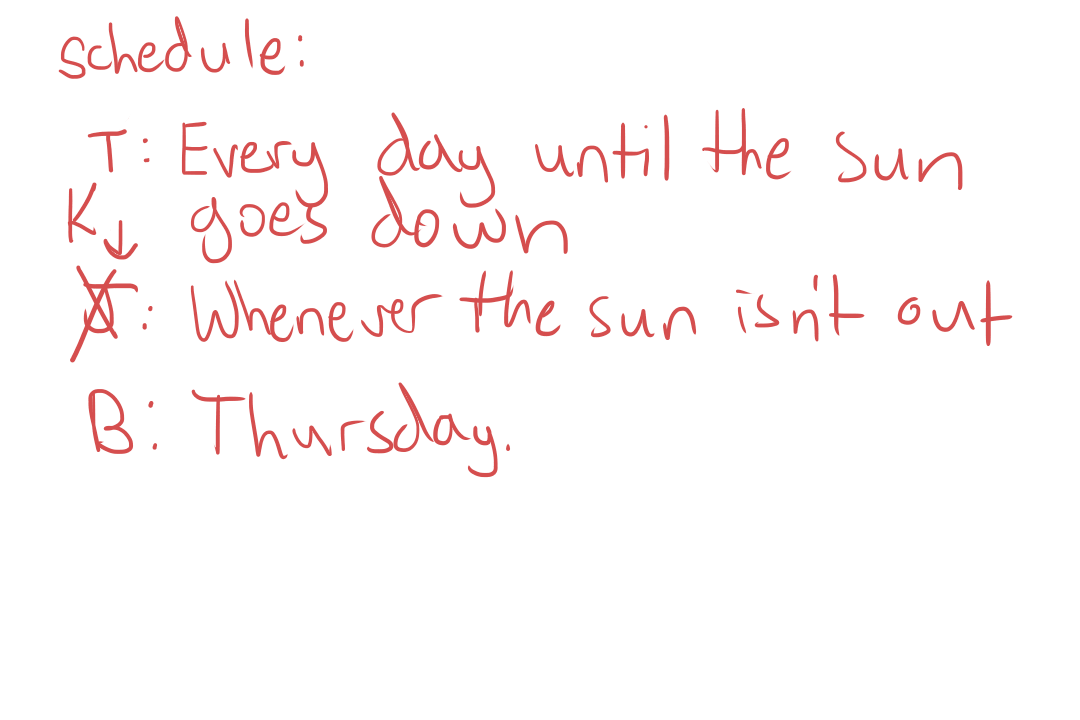 schedule:
T: Every day until the sun
K↓ goes down
J: Whenever the sun isn't out
B: Thursday.